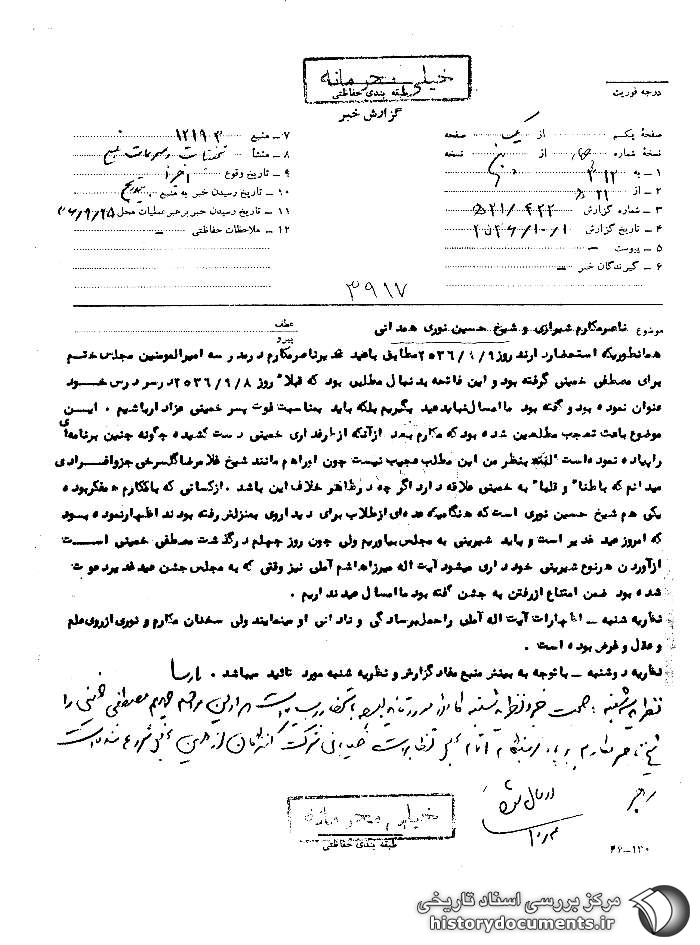 خیلی محرمانه
طبقه بندی حفاظتی
گزارش خبر
درجه فوریت
صفحهٔ یکم از یک صفحه
نسخهٔ شماره از نسخه
۱ – به ۳۱۲
۲ – از ۲۱ ه
۳ – شماره گزارش ۲۱/۴۲۲ ه
۴ – تاریخ گزارش ۲۵۳۶/۱۰/۱
۵ – پیوست –
۶ – گیرندگان خبر –
۷ – منبع ۱۲۱۹۳
۸ – منشأ
۹ – تاریخ وقوع اخیراً
۱۰ – تاریخ رسیدن خبر به منبع بتدریج
۱۱ – تاریخ رسیدن خبر برهبر عملیات محل ۳۶/۹/۲۵
۱۲ – ملاحظات حفاظتی –
۳۹۱۷
موضوع ناصر مکارم شیرازی و شیخ حسین نوری همدانی
عطف
پیرو
همانطوریکه استحضار دارند روز ۲۵۳۶/۹/۹ مطابق با عید غدیر ناصر مکارم در مدرسه امیرالمومنین مجلس ختم
برای مصطفی خمینی گرفته بود و این فاتحه بدنبال مطلبی بود که قبلا" روز ۲۵۳۶/۹/۸ در سر درس خود
عنوان نموده بود و گفته بود ما امسال نباید عید بگیریم بلکه باید بمناسبت فوت پسر خمینی عزادار باشیم . ایسن
موضوع باعث تعجب مطلعین شده بود که مکارم بعد از آنکه از طرفداری خمینی دست کشیده چگونه چنین برنامه‌ای
را پیاده نموده است البته بنظر من این مطلب عجیب نیست چون او را هم مانند شیخ غلامرضا گلسرخی جزو افرادی
میدانم که باطنا" و قلبا" به خمینی علاقه دارد اگر چه در ظاهر خلاف این باشد . از کسانی که با مکارم همفکر بوده
یکی هم شیخ حسین نوری است که هنگامیکه عده‌ای از طلاب برای دیدار وی بمنزلش رفته بودند اظهار نموده بسود
که امروز عید غدیر است و باید شیرینی به مجلس بیاوریم ولی چون روز چهلم درگذشت مصطفی خمینی است
از آوردن هر نوع شیرینی خودداری میشود آیت اله میرزا هاشم آملی نیز وقتی که به مجلس جشن عید غدیر دعوت
شده بود ضمن امتناع از رفتن به جشن گفته بود ما امسال عید نداریم .
نظریه شنبه – اظهارات آیت اله آملی را حمل بر سادگی و نادانی او مینمایند ولی سخنان مکارم و نوری از روی علم
و عقل و غرض بوده است .
نظریه دوشنبه – با توجه به بینش منبع مفاد گزارش و نظریه شنبه مورد تائید میباشد . پارسا
نظریه سه‌شنبه : صحت خبر و نظریه شنبه مصطفی خمینی را
رهبر
خیلی محرمانه
طبقه بندی حفاظتی
۳۶–۱۲۰
مرکز بررسی اسناد تاریخی
historydocuments.ir